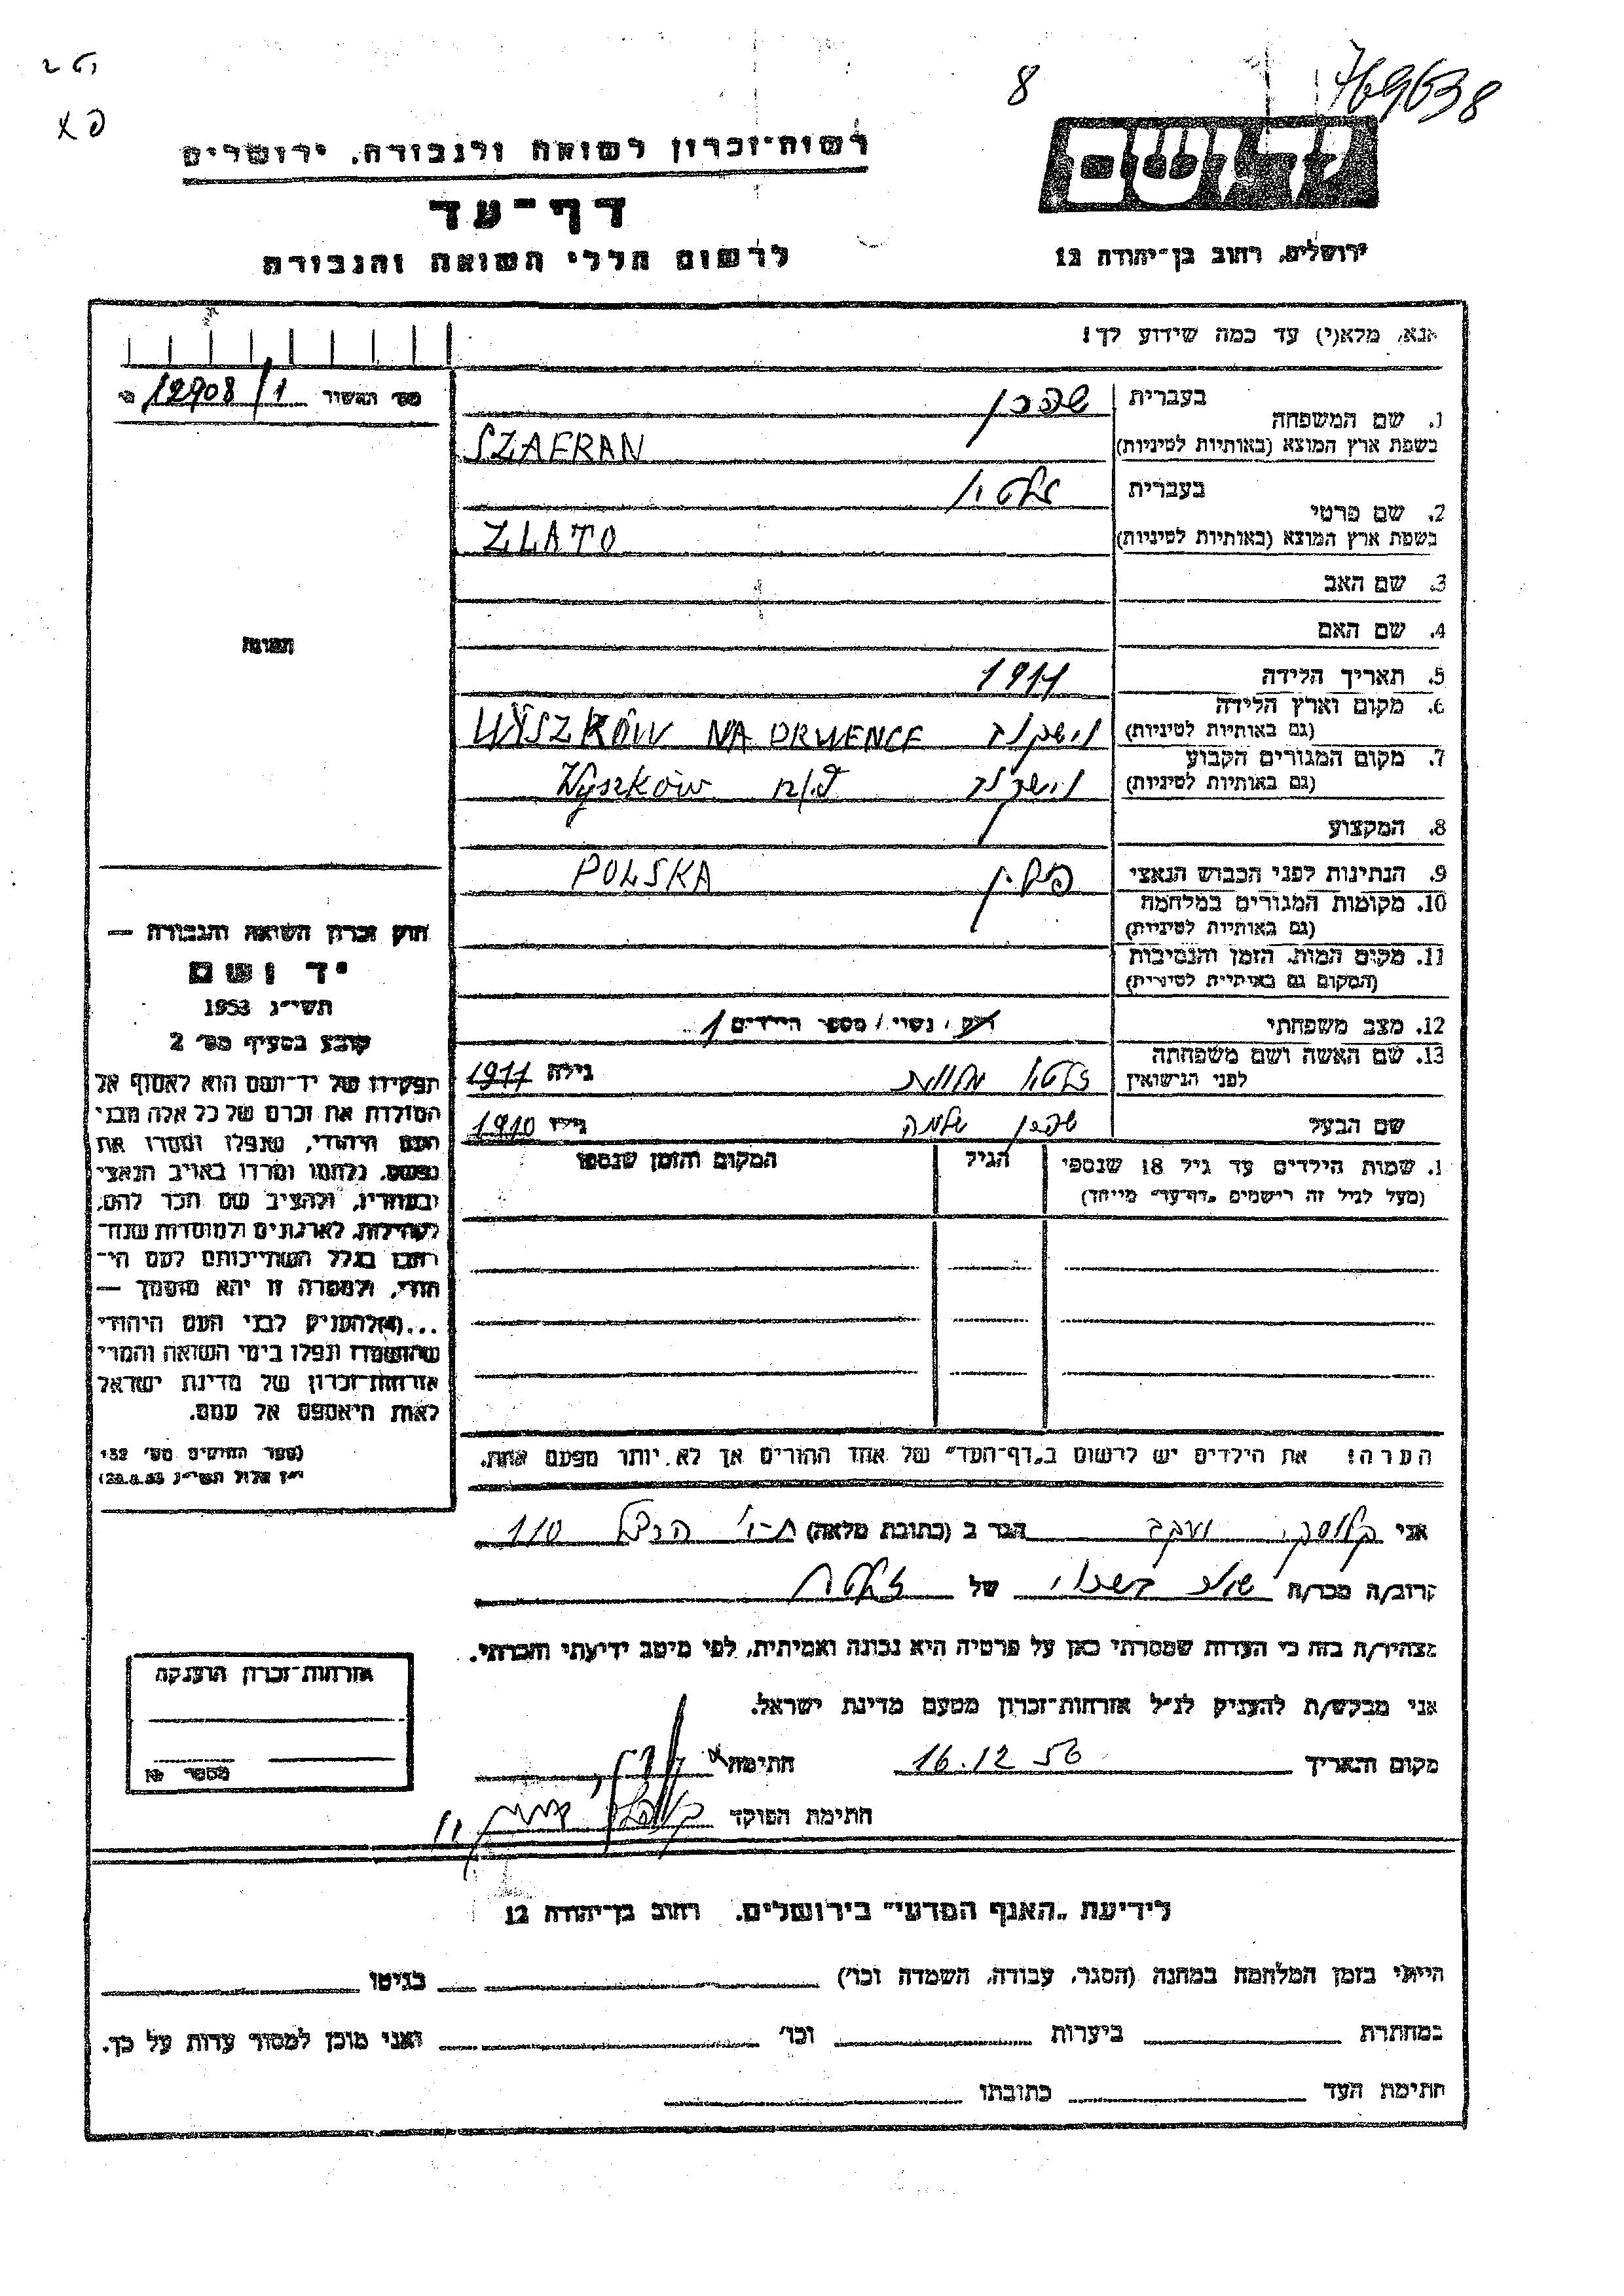 8
769638
רשות־זכרון לשואה ולגבורה, ירושלים
דף־עד
לרשום חללי השואה והגבורה
ירושלים, רחוב בן־יהודה 12
אנא, מלא(י) עד כמה שידוע לך!
מס׳ האשור 12908/1
1. שם המשפחה
בעברית שפרן
בשפת ארץ המוצא (באותיות לטיניות) SZAFRAN
2. שם פרטי
בעברית
בשפת ארץ המוצא (באותיות לטיניות) ZLATO
3. שם האב
4. שם האם
5. תאריך הלידה 1911
6. מקום וארץ הלידה
(גם באותיות לטיניות) WYSZKÓW NA DRWENCE
7. מקום המגורים הקבוע
(גם באותיות לטיניות) Wyszków
8. המקצוע
9. הנתינות לפני הכבוש הנאצי פולין POLSKA
10. מקומות המגורים במלחמה
(גם באותיות לטיניות)
11. מקום המות, הזמן והנסיבות
(המקום גם באותיות לטיניות)
12. מצב משפחתי רוק / נשוי / מספר הילדים 1
13. שם האשה ושם משפחתה
לפני הנישואין גילה 1911
שם הבעל שפרן שלמה גילו 1910
1. שמות הילדים עד גיל 18 שנספו הגיל המקום והזמן שנספו
(מעל לגיל זה רישמים „דף־עד״ מיוחד)
הערה! את הילדים יש לרשום ב„דף־העד״ של אחד ההורים אך לא יותר מפעם אחת.
תמונה
חוק זכרון השואה והגבורה —
יד ושם
תשי״ג 1953
קובע בסעיף מס׳ 2
תפקידו של יד־ושם הוא לאסוף אל
המולדת את זכרם של כל אלה מבני
העם היהודי, שנפלו ומסרו את
נפשם, נלחמו ומרדו באויב הנאצי
ובעוזריו, ולהציב שם וזכר להם,
לקהילות, לארגונים ולמוסדות שנח־
רבו בגלל השתייכותם לעם הי־
הודי, ולמטרה זו יהא מוסמך —
...(4) להעניק לבני העם היהודי
שהושמדו ונפלו בימי השואה והמרי
אזרחות־זכרון של מדינת ישראל
לאות היאספם אל עמם.
(ספר החוקים מס׳ 132
י״ז אלול תשי״ג 28.8.53)
אני יעקב הגר ב (כתובת מלאה) 110
קרוב/ה מכר/ה של זלטה
מצהיר/ה בזה כי העדות שמסרתי כאן על פרטיה היא נכונה ואמיתית, לפי מיטב ידיעתי והכרתי.
אני מבקש/ת להעניק לנ״ל אזרחות־זכרון מטעם מדינת ישראל.
מקום ותאריך 16.12.56 חתימה
חתימת הפוקד
אזרחות־זכרון הוענקה
מספר
לידיעת „האגף המדעי״ בירושלים, רחוב בן־יהודה 12
הייתי בזמן המלחמה במחנה (הסגר, עבודה, השמדה וכו׳) בגיטו
במחתרת ביערות וכו׳ ואני מוכן למסור עדות על כך.
חתימת העד כתובתו